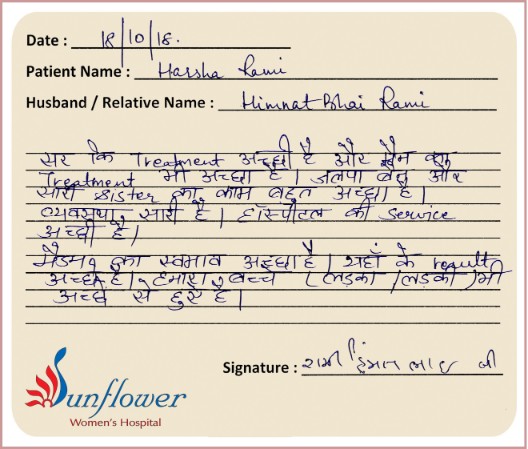 Date : 18/10/18.
Patient Name : Harsha Rami
Husband / Relative Name : Himmat Bhai Rami
सर कि Treatment अच्छी है और मैम का
Treatment भी अच्छा है। जलपा बेन और
सारी Sister का काम बहुत अच्छा है।
व्यवस्था सारी है। हॉस्पीटल की service
अच्छी है।
मैडम का स्वभाव अच्छा है। यहाँ के result
अच्छे है। हमारा बच्चे (लडका/लडकी) भी
अच्छे से हुए है।
Signature :
Sunflower
Women's Hospital